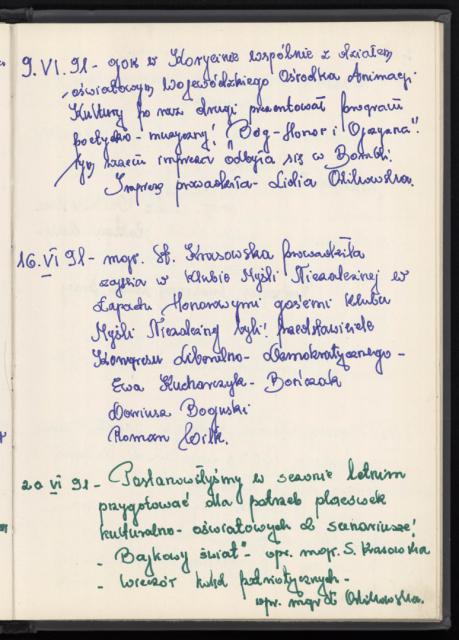 9.VI.91 - gok w Korycinie wspólnie z działem
oświatowym Wojewódzkiego Ośrodka Animacji
Kultury po raz drugi prezentował program
poetycko-muzyczny: "Bóg-Honor i Ojczyzna".
Tym razem impreza odbyła się w
Imprezę prowadziła - Lidia
16.VI 91 - mgr. St. Krasowska prowadziła
zajęcia w Klubie Myśli Niezależnej w
Łapach. Honorowymi gośćmi Klubu
Myśli Niezależnej byli: przedstawiciele
Kongresu Liberalno-Demokratycznego -
Ewa Kucharczyk-Bończak
Dariusz Boguski
Roman Wilk.
20 VI 91 - Postanowiłyśmy w sezonie letnim
przygotować dla potrzeb placówek
kulturalno-oświatowych 2 scenariusze:
- Bajkowy świat" - opr. mgr. S. Krasowska
- Wieczór patriotycznych -
opr. mgr